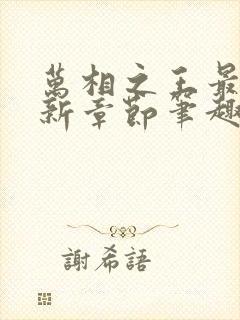 萬相之王最
新章節筆趣
謝希語